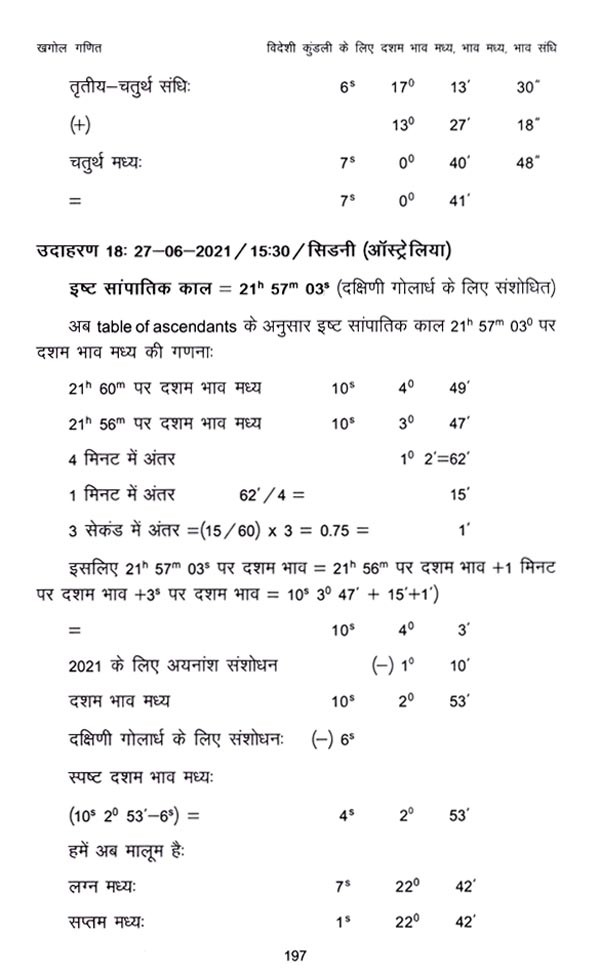 खगोल गणित विदेशी कुंडली के लिए दशम भाव मध्य, भाव मध्य, भाव संधि
तृतीय–चतुर्थ संधिः 6ˢ 17⁰ 13′ 30″
(+) 13⁰ 27′ 18″
चतुर्थ मध्यः 7ˢ 0⁰ 40′ 48″
= 7ˢ 0⁰ 41′
उदाहरण 18: 27–06–2021/15:30/सिडनी (ऑस्ट्रेलिया)
इष्ट सांपातिक काल = 21ʰ 57ᵐ 03ˢ (दक्षिणी गोलार्ध के लिए संशोधित)
अब table of ascendants के अनुसार इष्ट सांपातिक काल 21ʰ 57ᵐ 03⁰ पर
दशम भाव मध्य की गणनाः
21ʰ 60ᵐ पर दशम भाव मध्य 10ˢ 4⁰ 49′
21ʰ 56ᵐ पर दशम भाव मध्य 10ˢ 3⁰ 47′
4 मिनट में अंतर 1⁰ 2′=62′
1 मिनट में अंतर 62′/4 = 15′
3 सेकंड में अंतर =(15/60) x 3 = 0.75 = 1′
इसलिए 21ʰ 57ᵐ 03ˢ पर दशम भाव = 21ʰ 56ᵐ पर दशम भाव +1 मिनट
पर दशम भाव +3ˢ पर दशम भाव = 10ˢ 3⁰ 47′ + 15′+1′)
= 10ˢ 4⁰ 3′
2021 के लिए अयनांश संशोधन (–) 1⁰ 10′
दशम भाव मध्य 10ˢ 2⁰ 53′
दक्षिणी गोलार्ध के लिए संशोधनः (–) 6ˢ
स्पष्ट दशम भाव मध्यः
(10ˢ 2⁰ 53′–6ˢ) = 4ˢ 2⁰ 53′
हमें अब मालूम हैः
लग्न मध्यः 7ˢ 22⁰ 42′
सप्तम मध्यः 1ˢ 22⁰ 42′
197